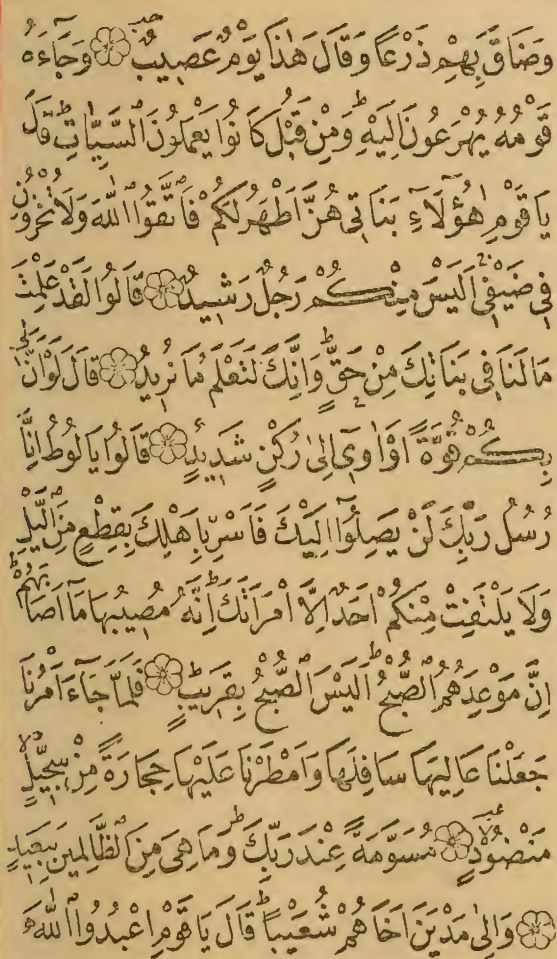 وَضَاقَ بِهِمْ ذَرْعًا وَقَالَ هٰذَا يَوْمٌ عَصِيبٌ ۝ وَجَاۤءَهُ
قَوْمُهُ يُهْرَعُونَ اِلَيْهِ ؕ وَمِنْ قَبْلُ كَانُوا يَعْمَلُونَ السَّيِّاٰتِ ؕ قَالَ
يَا قَوْمِ هٰٓؤُلَاۤءِ بَنَاتِى هُنَّ اَطْهَرُ لَكُمْ فَاتَّقُوا اللّٰهَ وَلَا تُخْزُونِ
فِى ضَيْفِى ؕ اَلَيْسَ مِنْكُمْ رَجُلٌ رَشِيدٌ ۝ قَالُوا لَقَدْ عَلِمْتَ
مَا لَنَا فِى بَنَاتِكَ مِنْ حَقٍّ ؕ وَاِنَّكَ لَتَعْلَمُ مَا نُرِيدُ ۝ قَالَ لَوْ اَنَّ لِى
بِكُمْ قُوَّةً اَوْ اٰوِى اِلٰى رُكْنٍ شَدِيدٍ ۝ قَالُوا يَا لُوطُ اِنَّا
رُسُلُ رَبِّكَ لَنْ يَصِلُوٓا اِلَيْكَ فَاَسْرِ بِاَهْلِكَ بِقِطْعٍ مِنَ الَّيْلِ
وَلَا يَلْتَفِتْ مِنْكُمْ اَحَدٌ اِلَّا امْرَاَتَكَ ؕ اِنَّهُ مُصِيبُهَا مَآ اَصَابَهُمْ ؕ
اِنَّ مَوْعِدَهُمُ الصُّبْحُ ؕ اَلَيْسَ الصُّبْحُ بِقَرِيبٍ ۝ فَلَمَّا جَاۤءَ اَمْرُنَا
جَعَلْنَا عَالِيَهَا سَافِلَهَا وَاَمْطَرْنَا عَلَيْهَا حِجَارَةً مِنْ سِجِّيلٍ
مَنْضُودٍ ۝ مُسَوَّمَةً عِنْدَ رَبِّكَ ؕ وَمَا هِىَ مِنَ الظَّالِمِينَ بِبَعِيدٍ
۝ وَاِلٰى مَدْيَنَ اَخَاهُمْ شُعَيْبًا ؕ قَالَ يَا قَوْمِ اعْبُدُوا اللّٰهَ